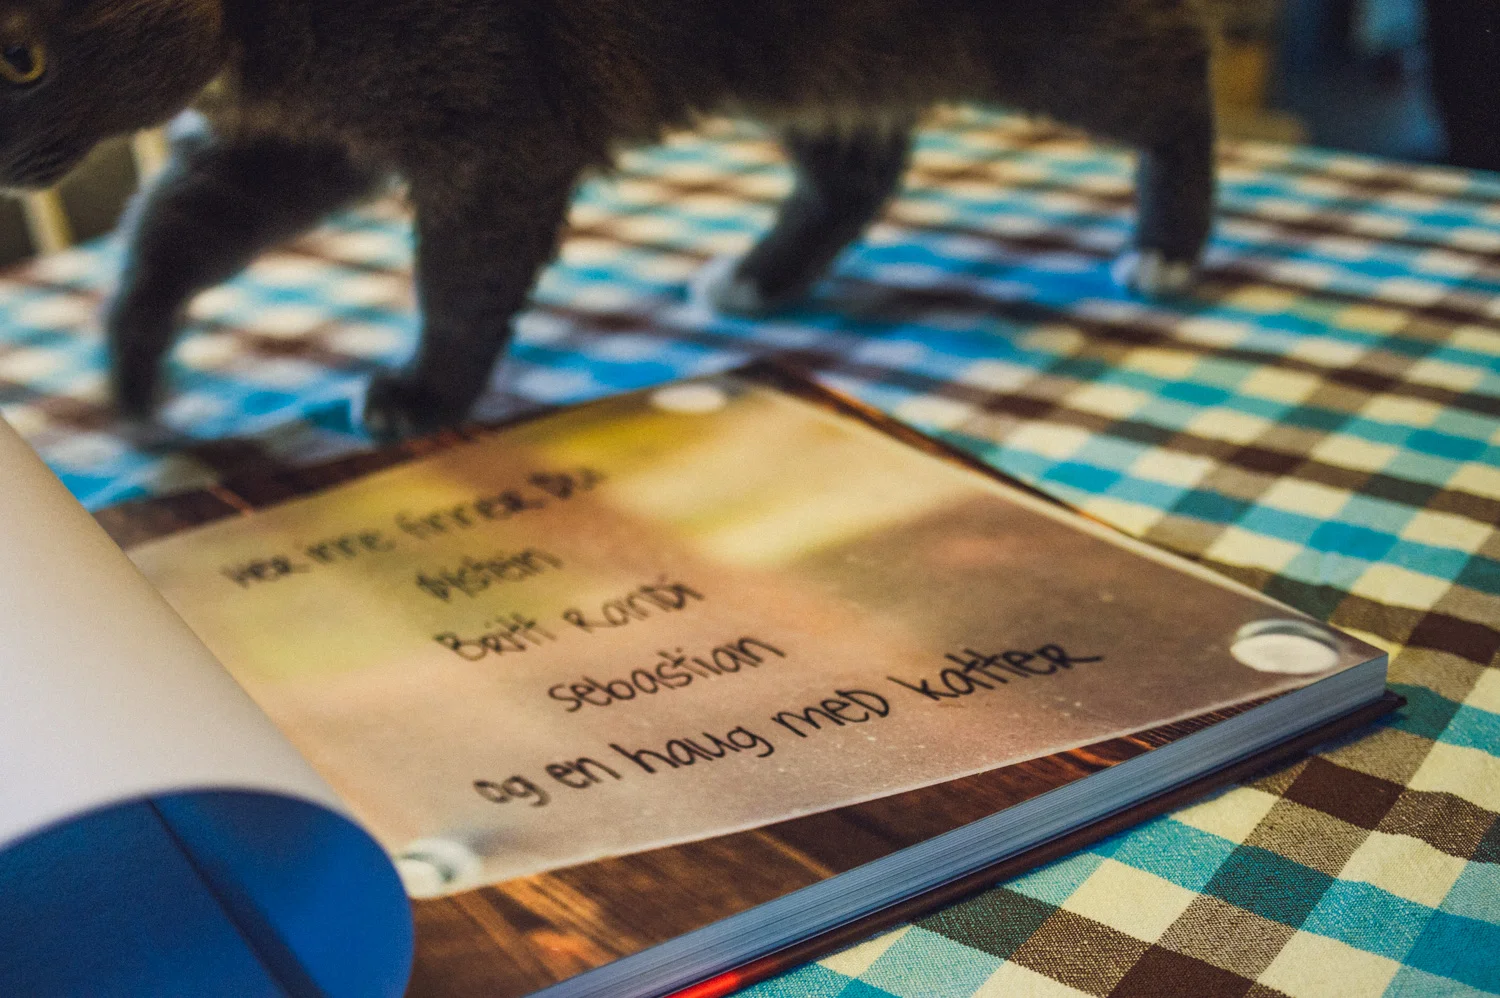 HER inne finner Du
Øystein
Britt Randi
Sebastian
og en haug med katter